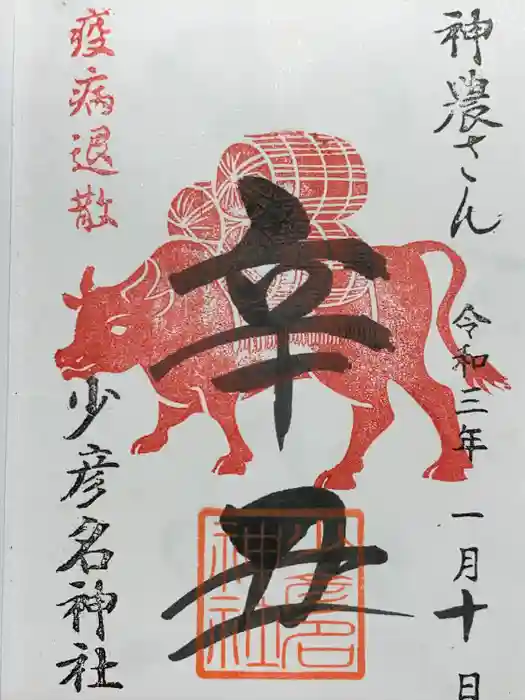 神農さん
令和三年 一月十日
辛丑
少彦名
神社
疫病退散
少彦名神社